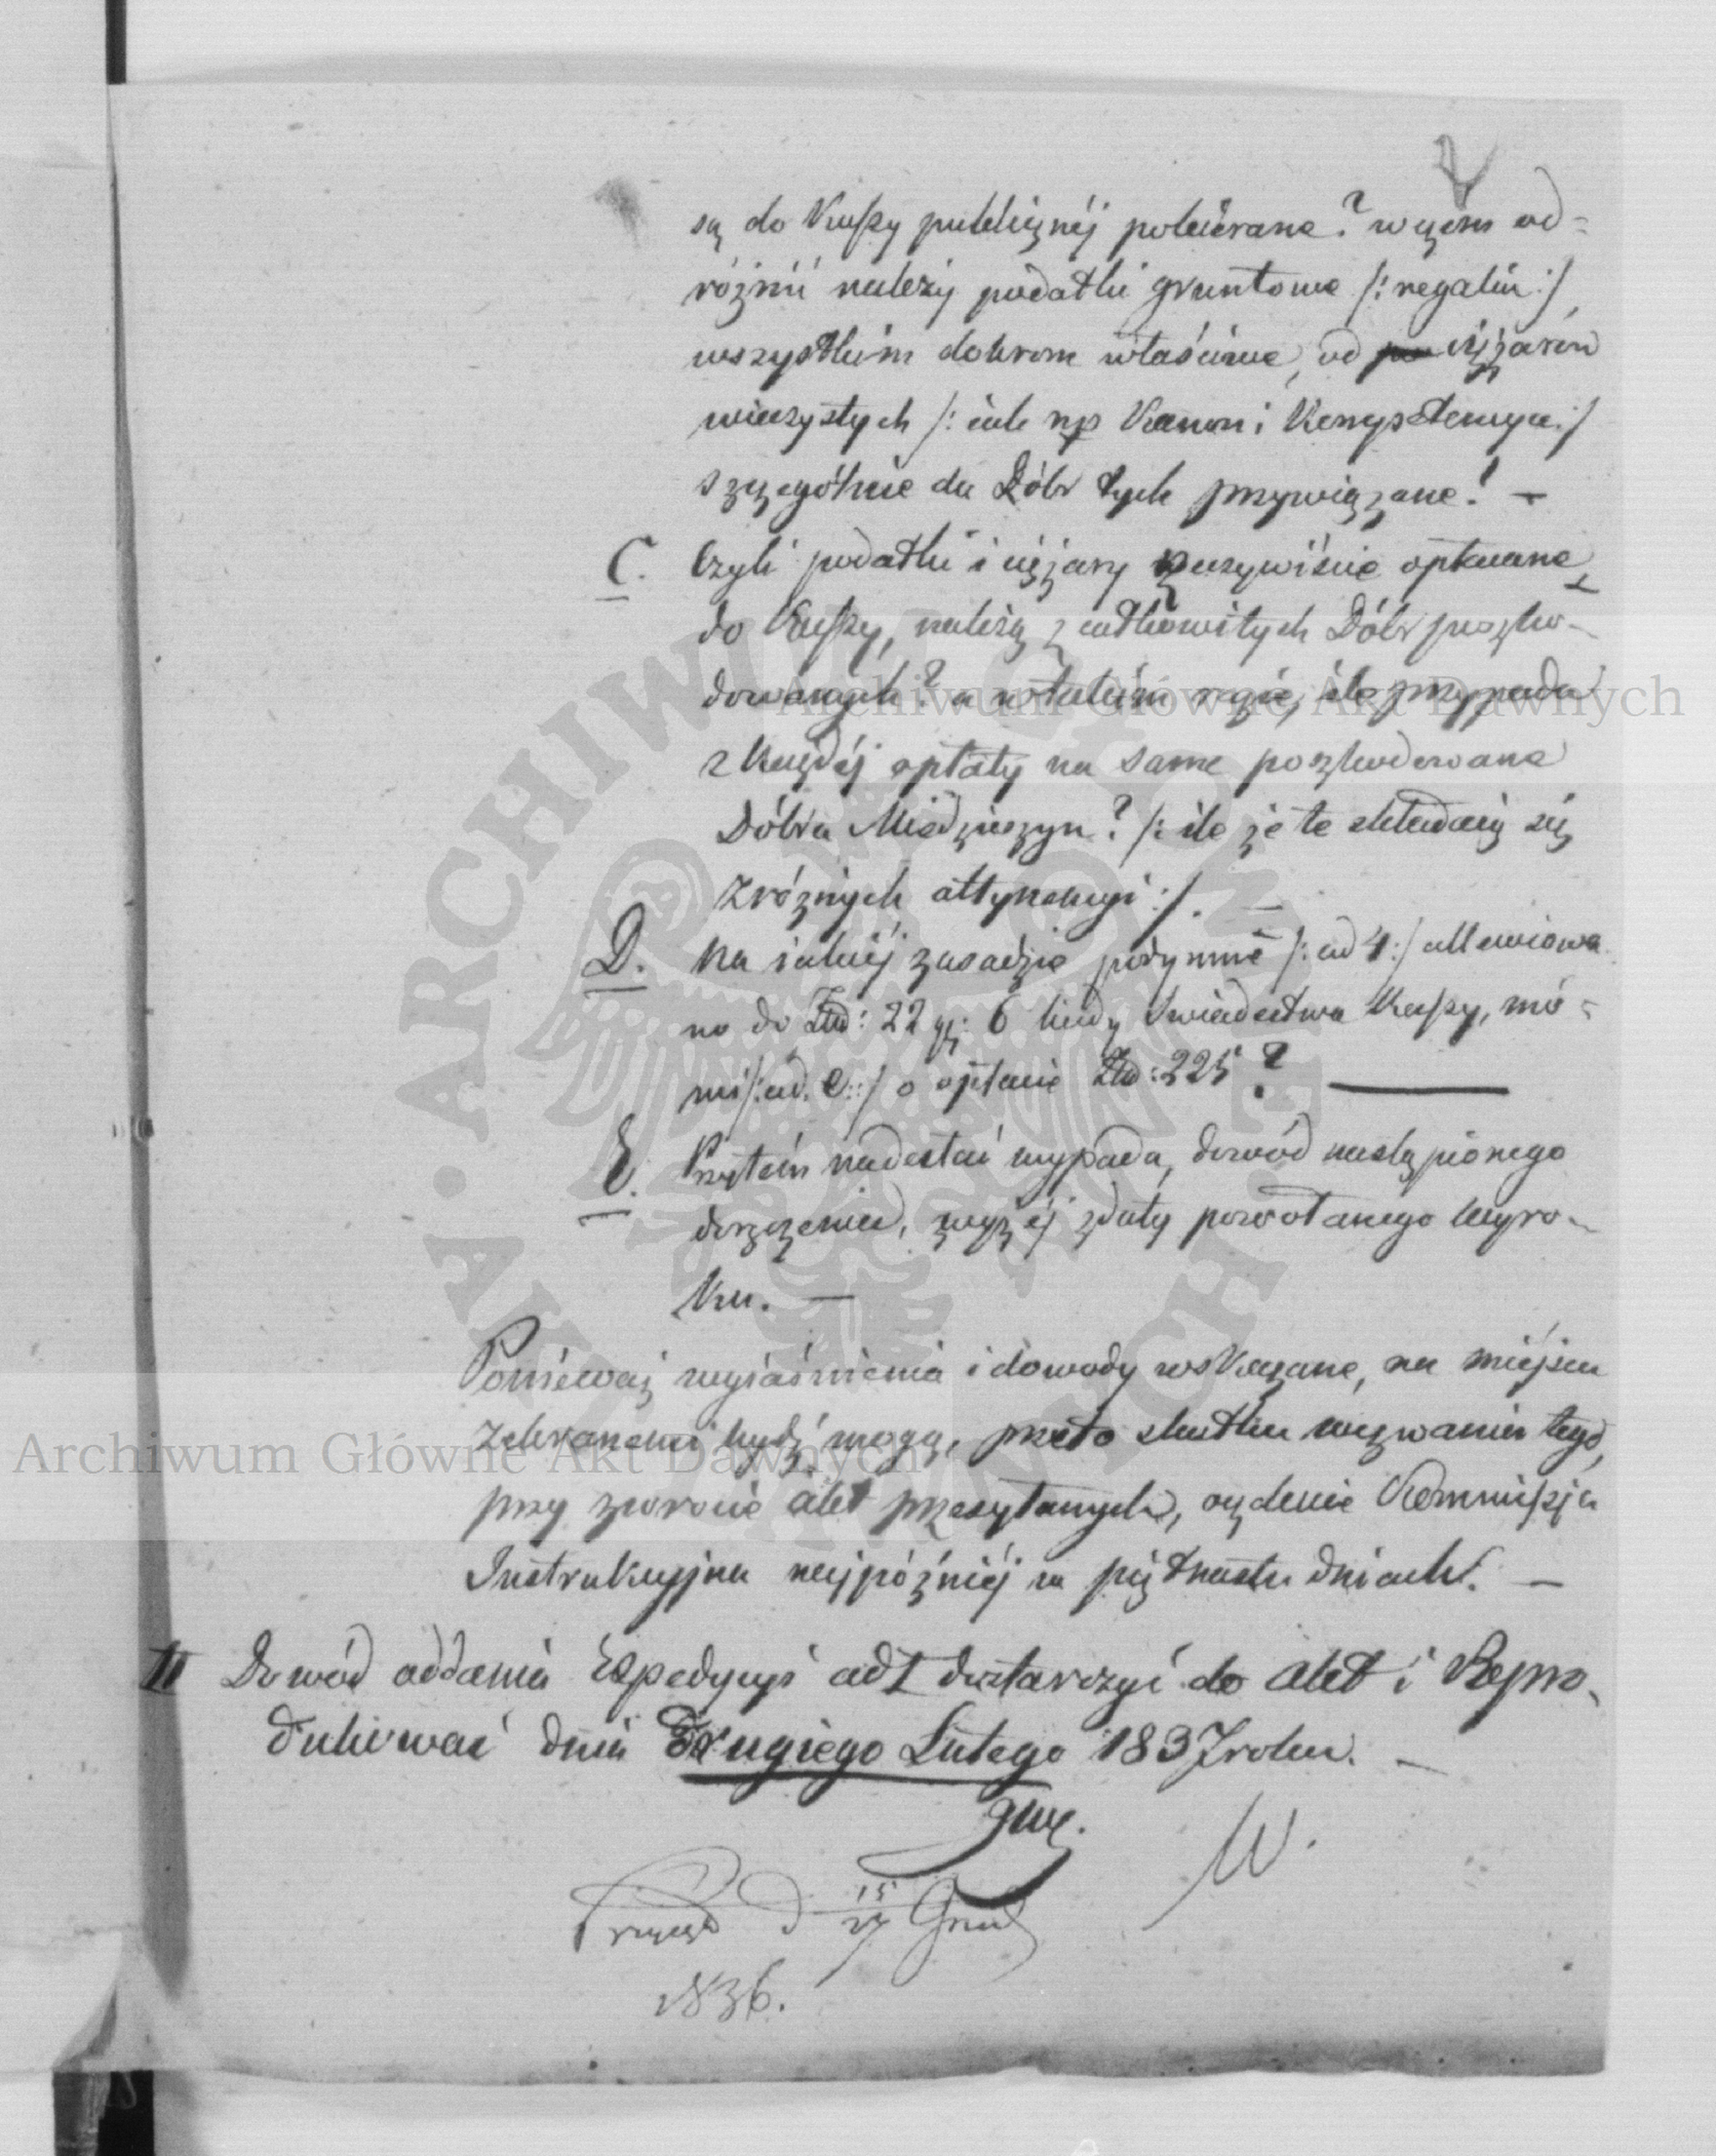 są do Kassy publicznéj pobierane? w czem od=
różnić należy podatki gruntowe /: regalia :/
wszystkim dobrom właściwe, od ciężarów
wieczystych /: jak np Kanon i Kompetencya :/
szczególnie do Dóbr tych przywiązane! —
C. Czyli podatki i ciężary rzeczywiście opłacane
do Kassy, należą z całkowitych Dóbr poszko-
dowanych? a w takim razie, ile przypada
z każdéj opłaty na same poszkodowane
Dobra Miedzieszyn? /: ile że te składają się
z różnych attynencyi :/. —
D. Na jakiéj zasadzie podymne /: ad 4 :/ allewiowa
no do Złp: 22 gr: 6 kiedy świadectwo Kassy, mó=
wi /: ad. C :/ o opłacie Złp: 225? —
E. Przytém nadesłać wypada, dowód nastąpionego
doręczenia, wyżéj z daty powołanego Wyro-
ku. —
Ponieważ wyjaśnienia i dowody wskazane, na miejscu
zebranemi bydź mogą, przeto skutku wezwania tego,
przy zwrocie akt przesyłanych, oczekuie Kommissja
Instrukcyjna najpóźniéj w piętnastu dniach. —
II Dowód oddania Expedycyi ad I dostarczyć do akt i Repro-
dukować dnia Drugiego Lutego 1837 roku. —
W.
d 15/27 Grud
1836.
Archiwum Główne Akt Dawnych
Archiwum Główne Akt Dawnych